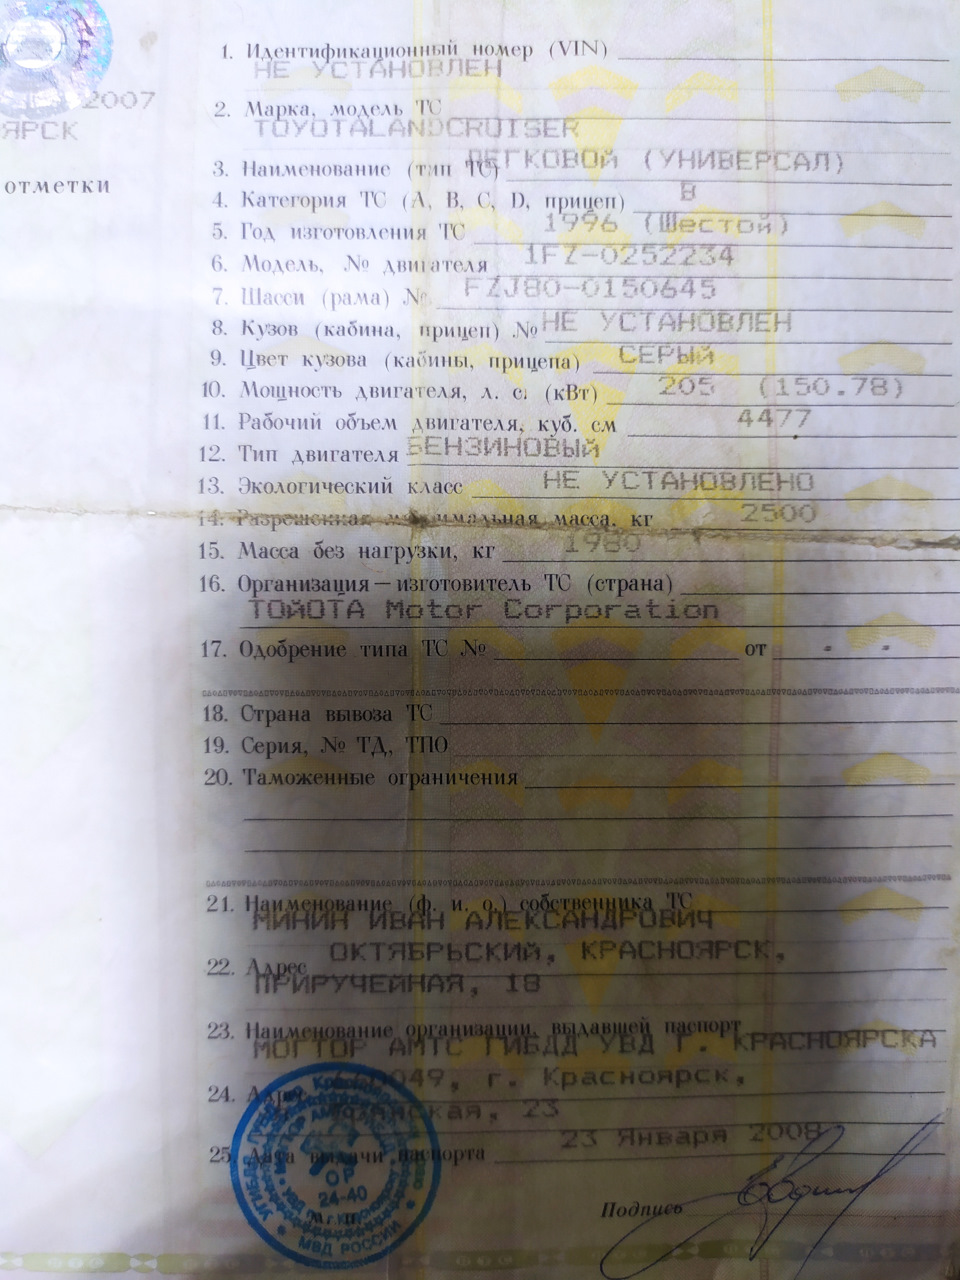 2007
ЯРСК
отметки
1. Идентификационный номер (VIN)
НЕ УСТАНОВЛЕН
2. Марка, модель ТС
TOYOTALANDCRUISER
3. Наименование (тип ТС) ЛЕГКОВОЙ (УНИВЕРСАЛ)
4. Категория ТС (A, B, C, D, прицеп) B
5. Год изготовления ТС 1996 (Шестой)
6. Модель, № двигателя 1FZ-0252234
7. Шасси (рама) № FZJ80-0150645
8. Кузов (кабина, прицеп) № НЕ УСТАНОВЛЕН
9. Цвет кузова (кабины, прицепа) СЕРЫЙ
10. Мощность двигателя, л. с. (кВт) 205 (150.78)
11. Рабочий объем двигателя, куб. см 4477
12. Тип двигателя БЕНЗИНОВЫЙ
13. Экологический класс НЕ УСТАНОВЛЕНО
14. Разрешенная максимальная масса, кг 2500
15. Масса без нагрузки, кг 1980
16. Организация – изготовитель ТС (страна)
ТОЙОТА Motor Corporation
17. Одобрение типа ТС № от - -
18. Страна вывоза ТС
19. Серия, № ТД, ТПО
20. Таможенные ограничения
21. Наименование (ф. и. о.) собственника ТС
МИНИН ИВАН АЛЕКСАНДРОВИЧ
22. Адрес ОКТЯБРЬСКИЙ, КРАСНОЯРСК,
ПРИРУЧЕЙНАЯ, 18
23. Наименование организации, выдавшей паспорт
МОГТОР АМТС ГИБДД УВД Г. КРАСНОЯРСКА
24. Адрес 049, г. Красноярск,
23
25. Дата выдачи паспорта 23 Января 2008
ОР
24-40
М.П.
МВД РОССИИ
Подпись